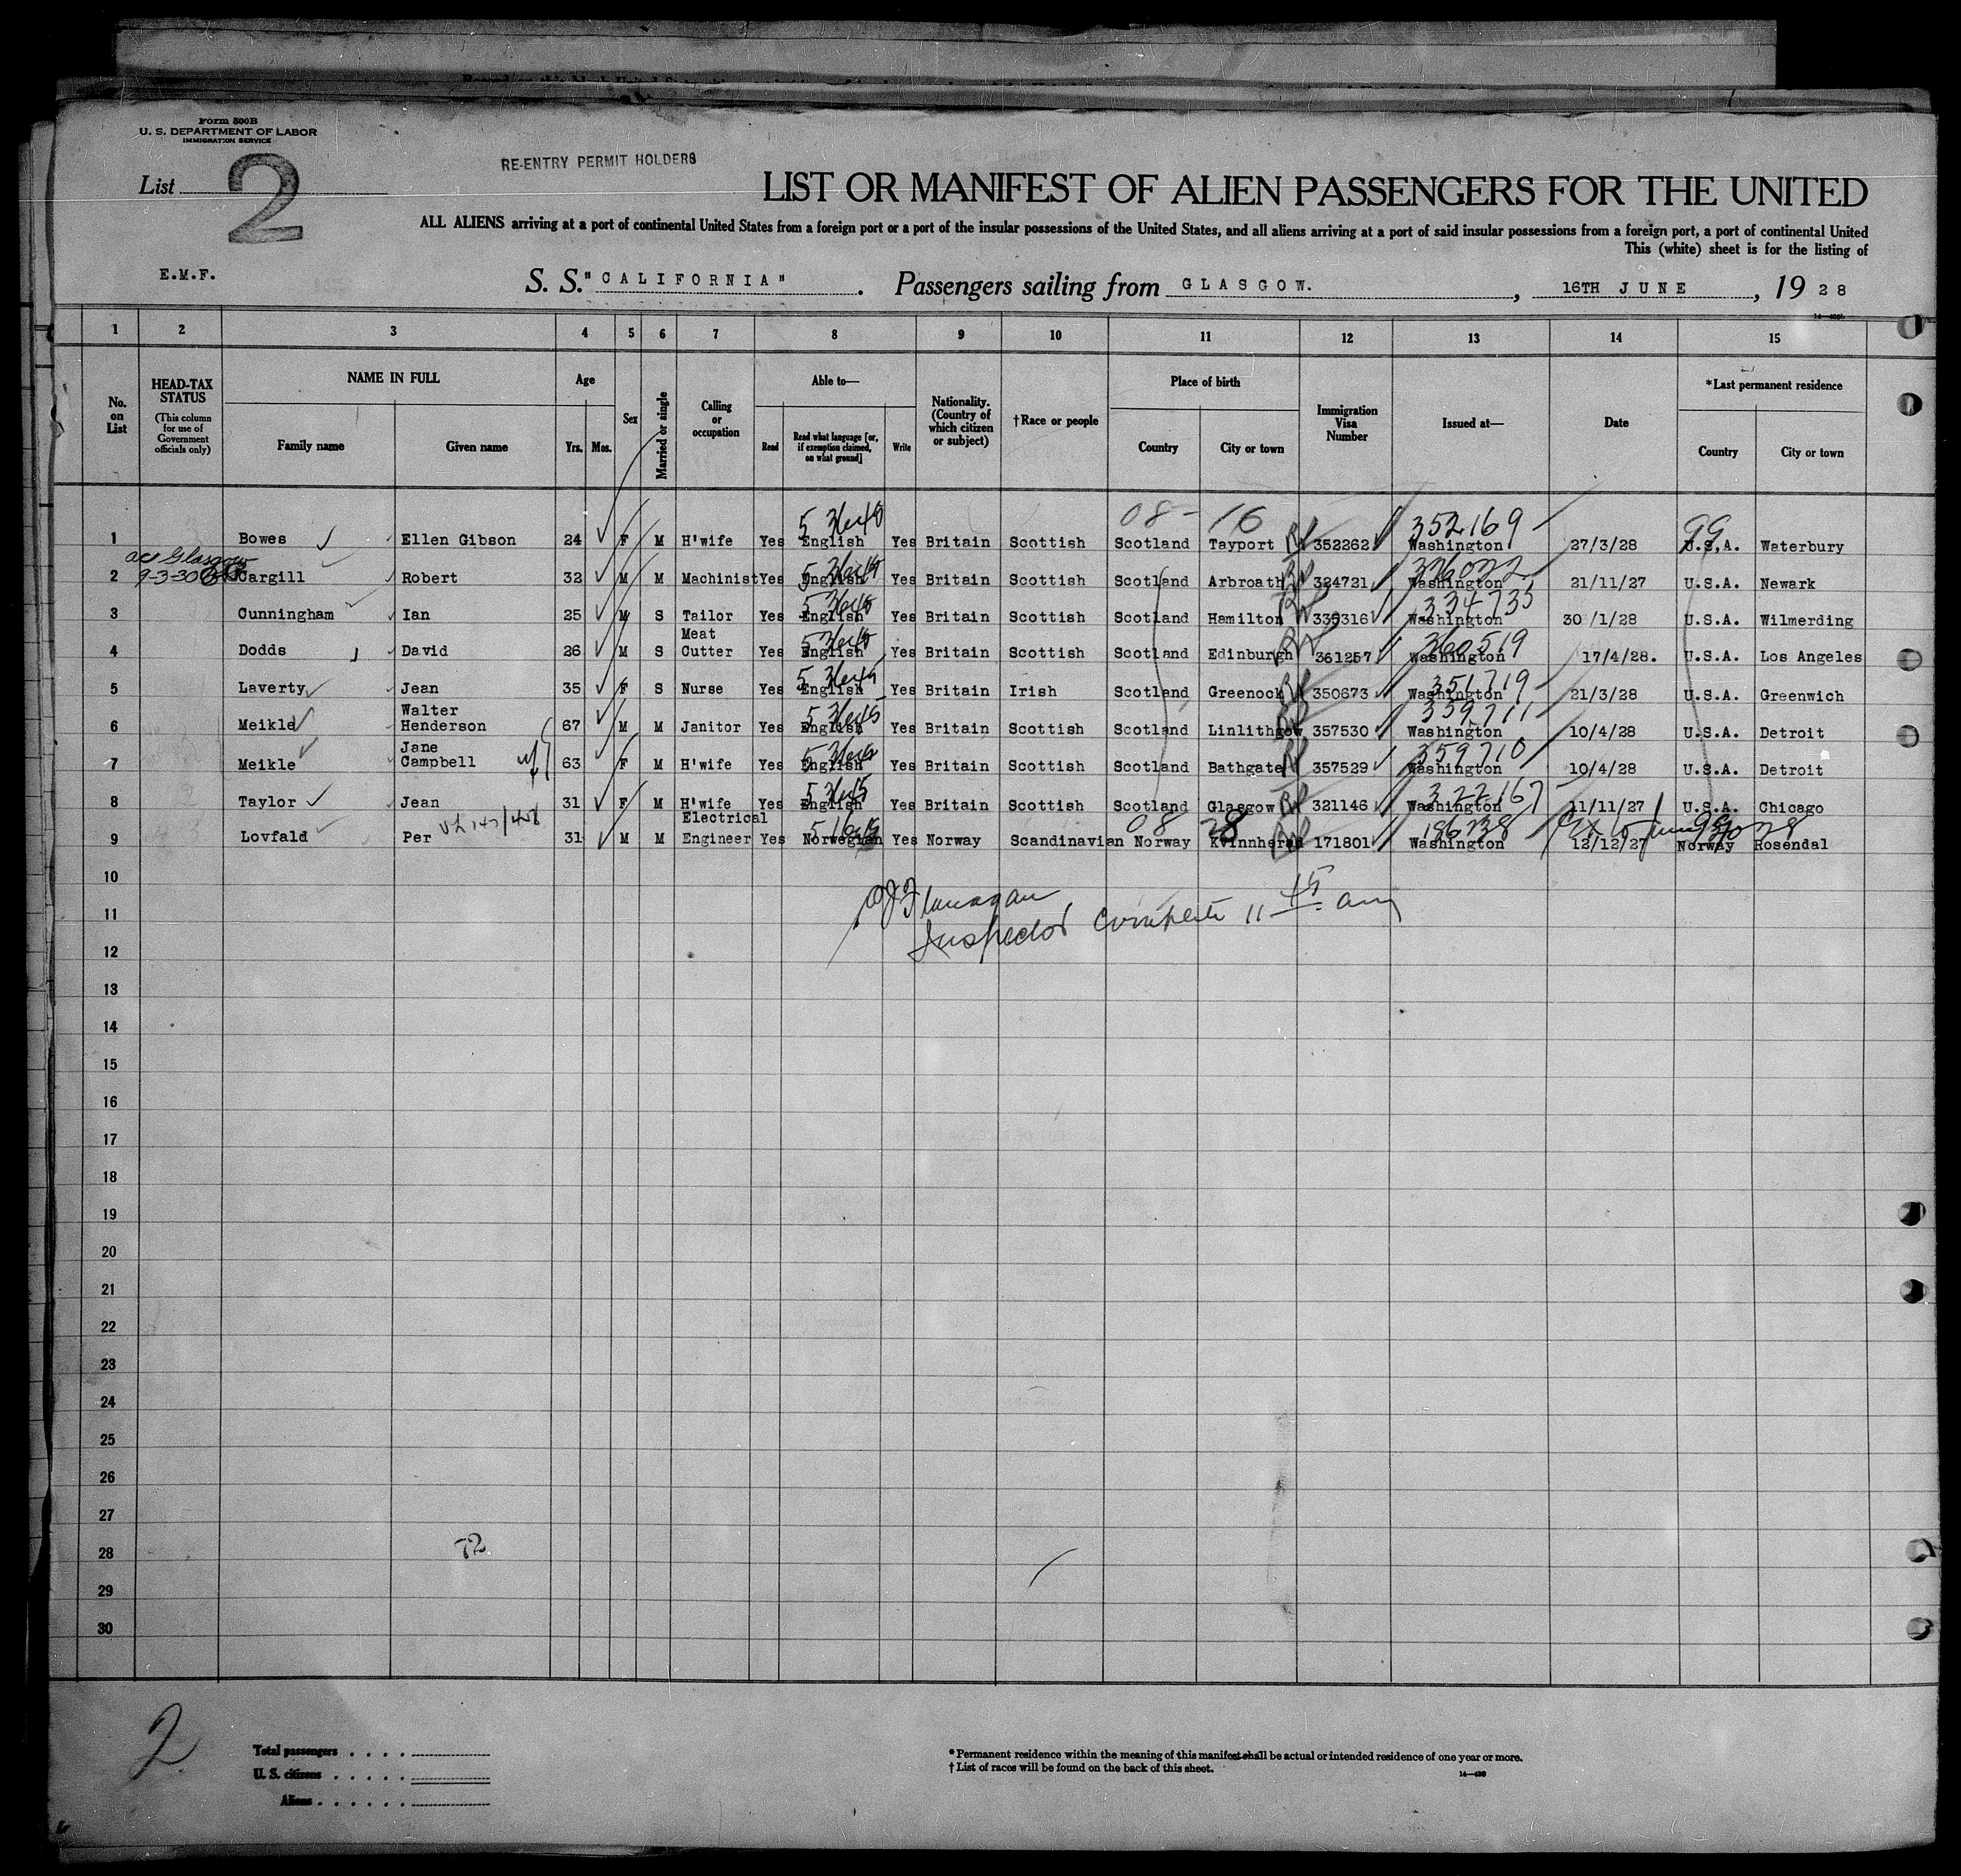 Form 500B
U. S. DEPARTMENT OF LABOR
IMMIGRATION SERVICE
RE-ENTRY PERMIT HOLDERS
List 2
LIST OR MANIFEST OF ALIEN PASSENGERS FOR THE UNITED
ALL ALIENS arriving at a port of continental United States from a foreign port or a port of the insular possessions of the United States, and all aliens arriving at a port of said insular possessions from a foreign port, a port of continental United
This (white) sheet is for the listing of
E.M.F.
S. S. "CALIFORNIA". Passengers sailing from GLASGOW. , 16TH JUNE , 19 28
1 2 3 4 5 6 7 8 9 10 11 12 13 14 15
No. on List
HEAD-TAX STATUS
(This column for use of Government officials only)
NAME IN FULL
Family name Given name
Age
Yrs. Mos.
Sex
Married or single
Calling or occupation
Able to—
Read Read what language [or, if exemption claimed, on what ground] Write
Nationality. (Country of which citizen or subject)
†Race or people
Place of birth
Country City or town
Immigration Visa Number
Issued at—
Date
*Last permanent residence
Country City or town
08- 16 352169 99
1 Bowes Ellen Gibson 24 F M H'wife Yes English Yes Britain Scottish Scotland Tayport 352262 Washington 27/3/28 U.S.A. Waterbury
Glasgow
9-3-30
326022
2 Cargill Robert 32 M M Machinist Yes English Yes Britain Scottish Scotland Arbroath 324721 Washington 21/11/27 U.S.A. Newark
334735
3 Cunningham Ian 25 M S Tailor Yes English Yes Britain Scottish Scotland Hamilton 335316 Washington 30/1/28 U.S.A. Wilmerding
360519
4 Dodds David 26 M S Meat Cutter Yes English Yes Britain Scottish Scotland Edinburgh 361257 Washington 17/4/28. U.S.A. Los Angeles
351719
5 Laverty Jean 35 F S Nurse Yes English Yes Britain Irish Scotland Greenock 350673 Washington 21/3/28 U.S.A. Greenwich
359711
6 Meikle Walter Henderson 67 M M Janitor Yes English Yes Britain Scottish Scotland Linlithgow 357530 Washington 10/4/28 U.S.A. Detroit
359710
7 Meikle Jane Campbell 63 F M H'wife Yes English Yes Britain Scottish Scotland Bathgate 357529 Washington 10/4/28 U.S.A. Detroit
322167
8 Taylor Jean 31 F M H'wife Yes English Yes Britain Scottish Scotland Glasgow 321146 Washington 11/11/27 U.S.A. Chicago
08 28 186238
9 Lovfald Per 31 M M Electrical Engineer Yes Norwegian Yes Norway Scandinavian Norway Kvinnherad 171801 Washington 12/12/27 Norway Rosendal
10
Flanagan
11
Inspector Complete 11 45 am
12
13
14
15
16
17
18
19
20
21
22
23
24
25
26
27
28 72
29
30
2
Total passengers . . . .
U. S. citizens . . . . .
Aliens . . . . . .
*Permanent residence within the meaning of this manifest shall be actual or intended residence of one year or more.
†List of races will be found on the back of this sheet.